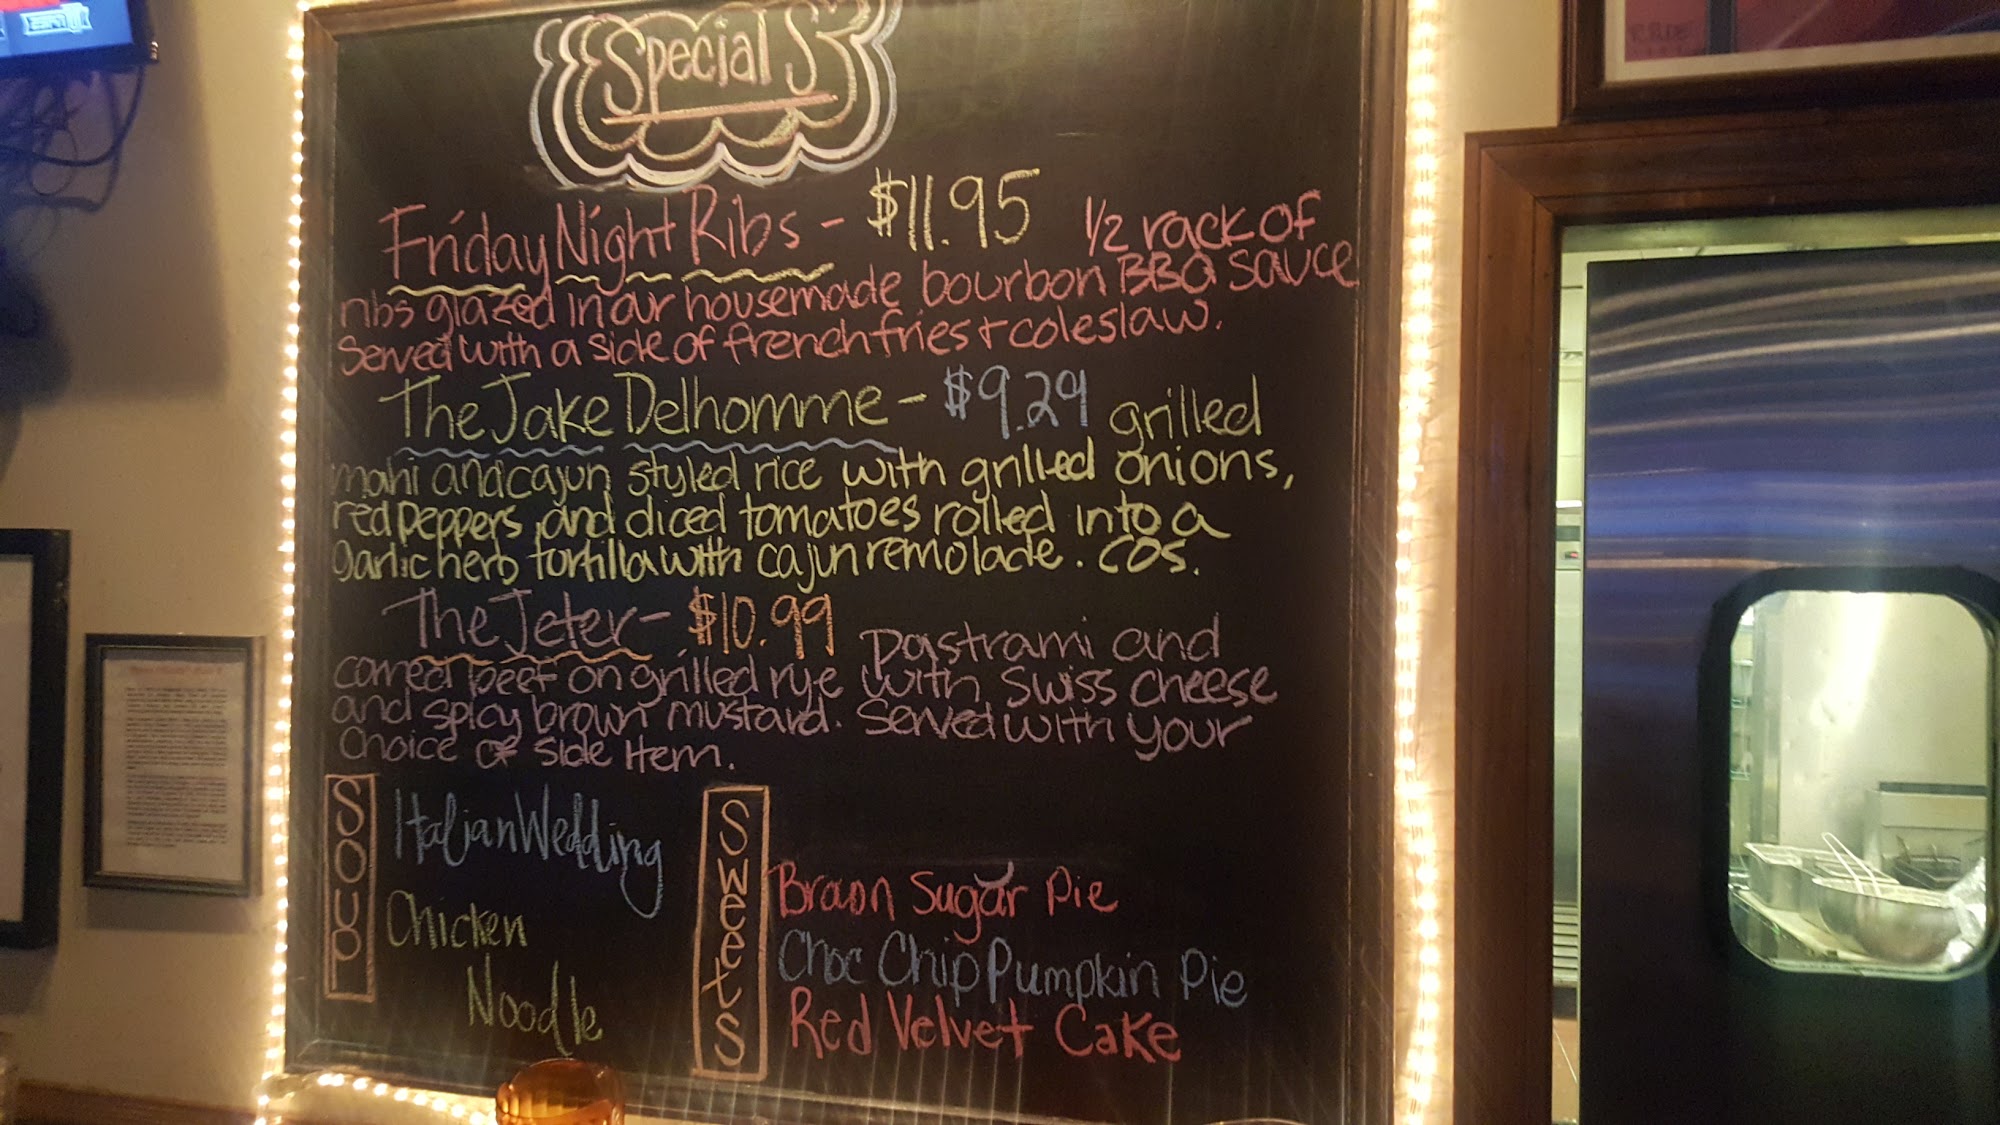 ESPN
Specials
Friday Night Ribs - $11.95 1/2 rack of
ribs glazed in our housemade bourbon BBQ sauce
Served with a side of french fries + coleslaw.
The Jake Delhomme - $9.29 grilled
mahi and cajun styled rice with grilled onions,
red peppers and diced tomatoes rolled into a
garlic herb tortilla with cajun remolade. COS.
The Jeter - $10.99 Pastrami and
corned beef on grilled rye with Swiss cheese
and spicy brown mustard. Served with your
Choice of side Item.
SOUP
Italian Wedding
Chicken
Noodle
Sweets
Braon Sugar Pie
Choc Chip Pumpkin Pie
Red Velvet Cake